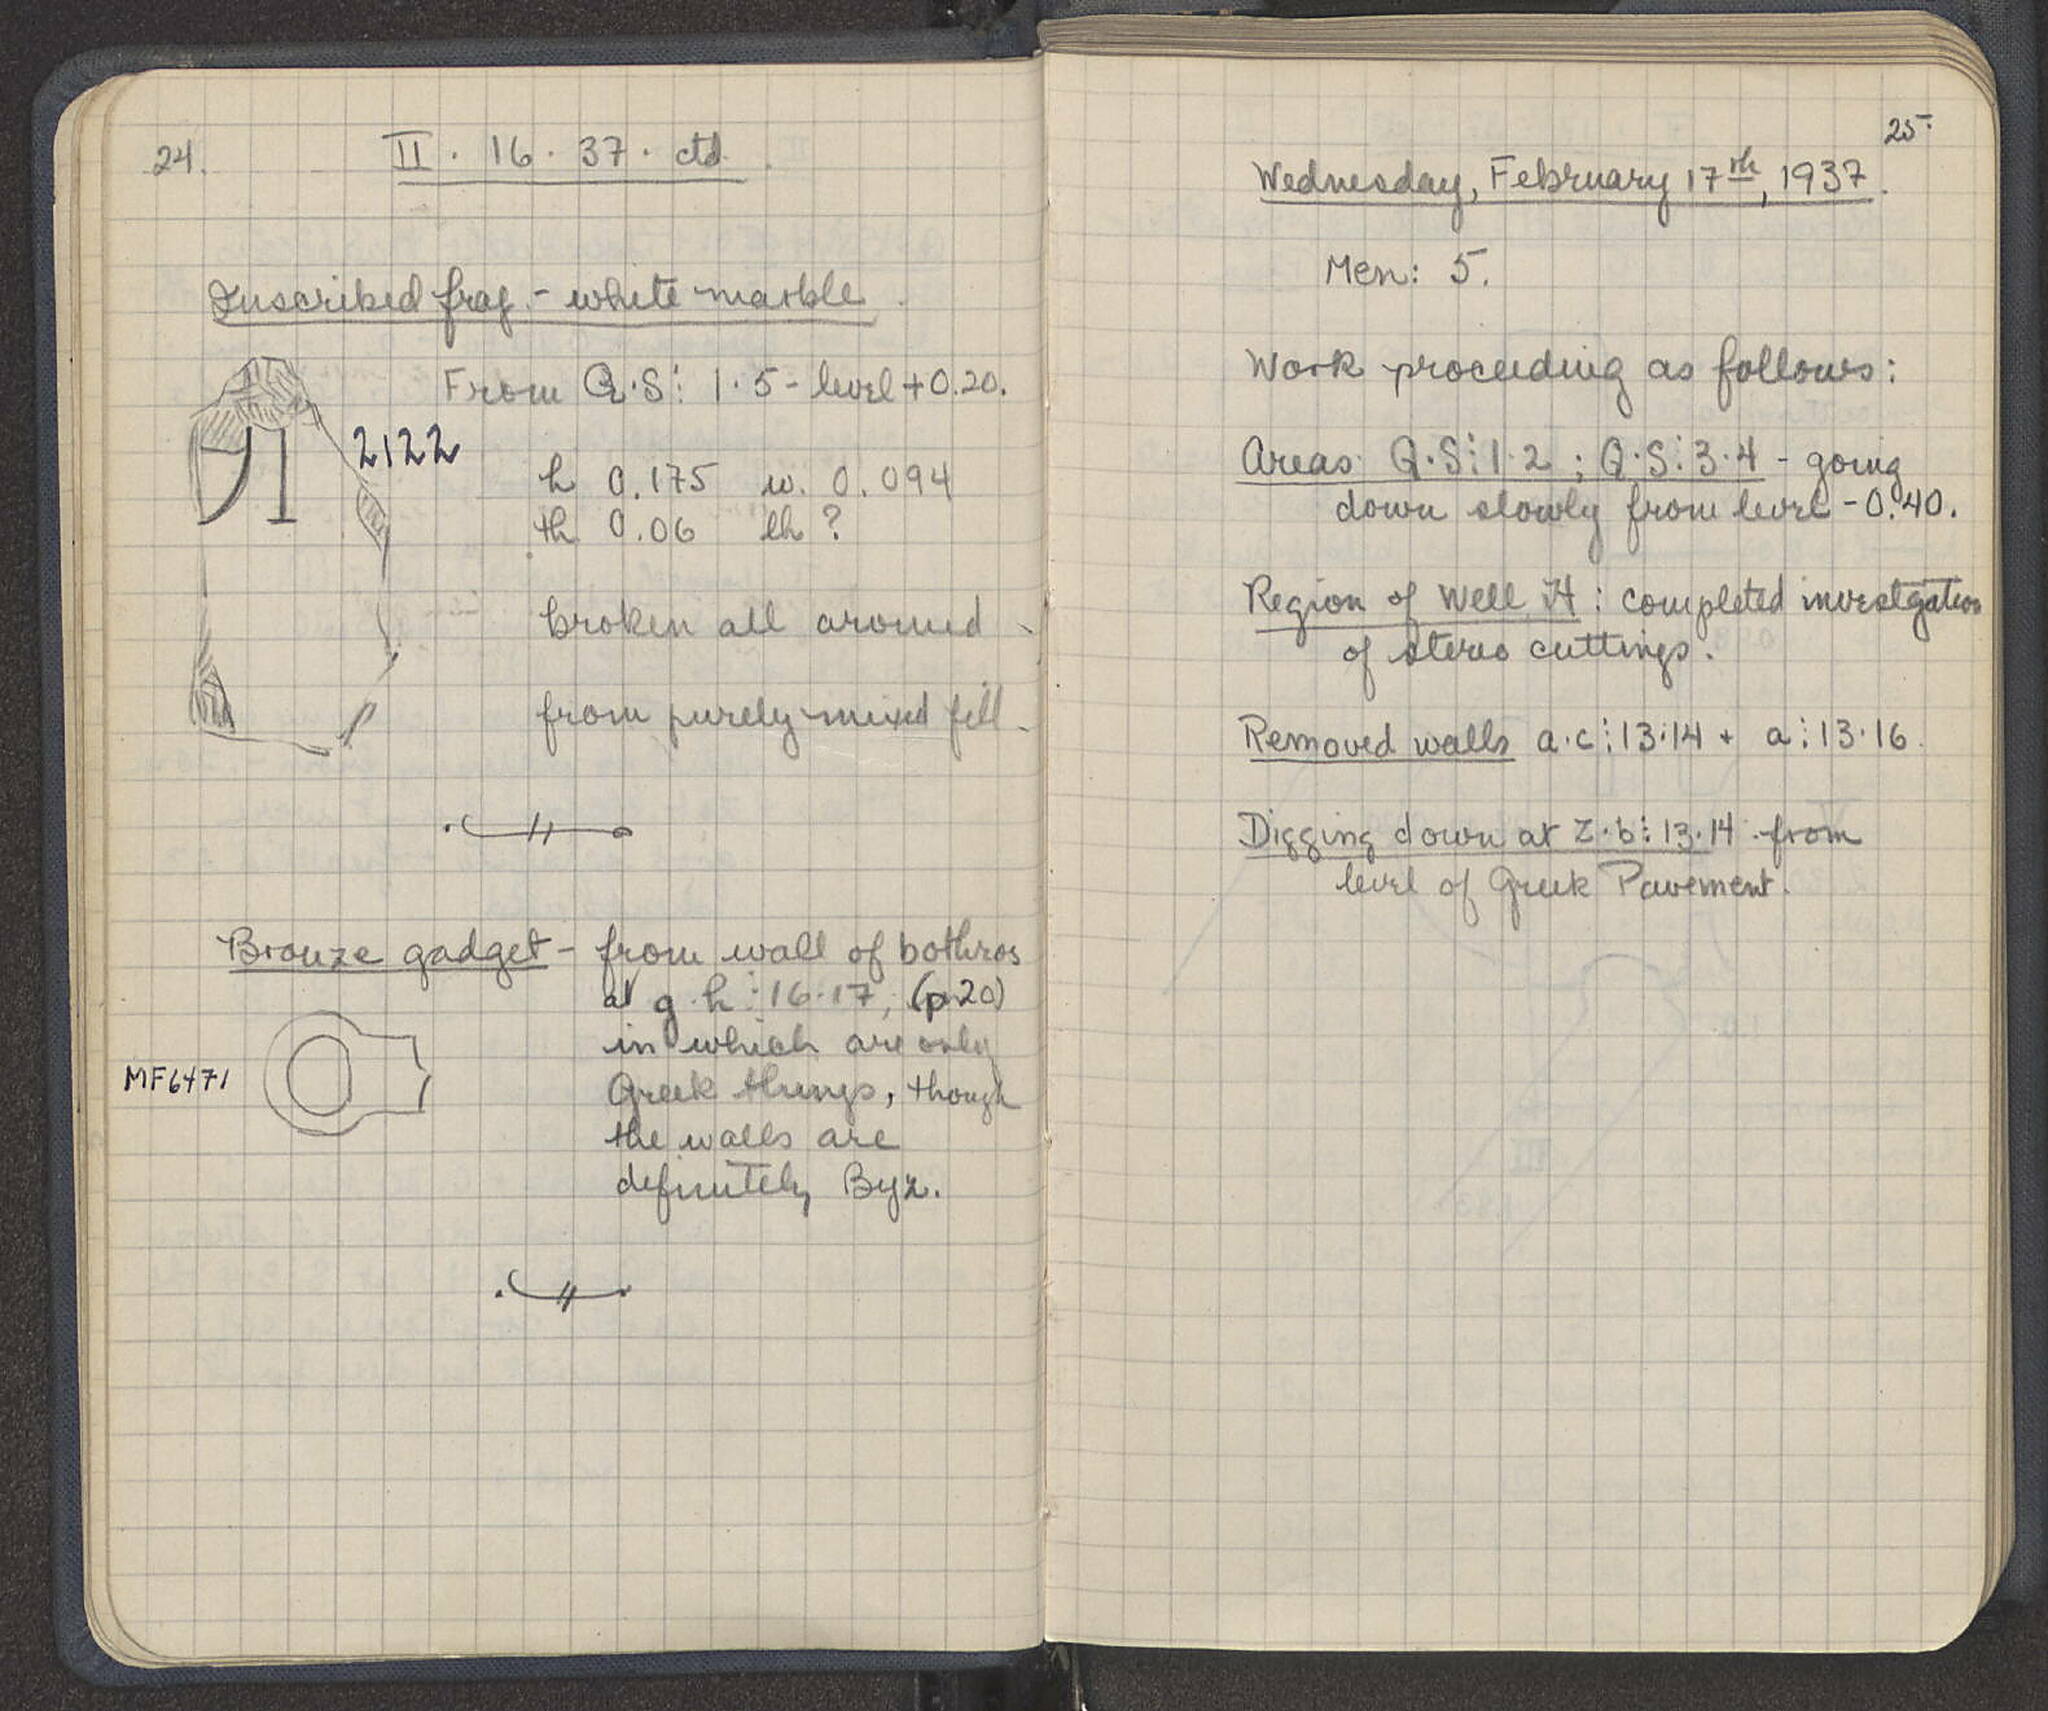 24.
II · 16 · 37 · ctd.
Inscribed frag. - white marble.
From Q·S⋮ 1·5 - level +0.20.
2122
h 0.175 w. 0.094
th 0.06 lh ?
broken all around.
from purely mixed fill.
Bronze gadget - from wall of bothros
at g·h⋮16·17, (p 20)
in which are only
MF6471
Greek things, though
the walls are
definitely Byz.
25.
Wednesday, February 17th, 1937.
Men: 5.
Work proceeding as follows:
Areas Q·S⋮1·2 ; Q·S⋮3·4 - going
down slowly from level - 0.40.
Region of Well : completed investigation
of stereo cuttings.
Removed walls a·c⋮13·14 + a⋮13·16.
Digging down at z·b⋮13·14 from
level of Greek Pavement.